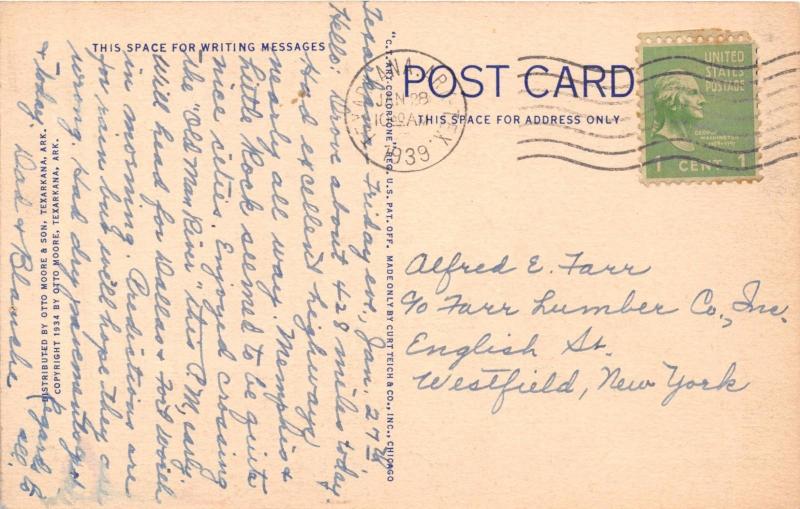 THIS SPACE FOR WRITING MESSAGES
Texarkana - Friday eve., Jan. 27th
Hello: Drove about 428 miles today.
Had excellent highways
nearly all way. Memphis &
Little Rock seemed to be quite
nice cities. Enjoyed crossing
the "Old Man River" this A.M. early.
Will head for Dallas & Fort Worth
in morning. Predictions are
for rain but we'll hope they are
wrong. Had dry pavement yest.
& today. Regards to
all.
Dad & Blanche
DISTRIBUTED BY OTTO MOORE & SON, TEXARKANA, ARK.
COPYRIGHT 1934 BY OTTO MOORE, TEXARKANA, ARK.
"C.T. ART-COLORTONE" REG. U.S. PAT. OFF. MADE ONLY BY CURT TEICH & CO., INC., CHICAGO
POST CARD
THIS SPACE FOR ADDRESS ONLY
TEXARKANA, ARK. TEX.
JAN 28
10 AM
1939
UNITED
STATES
POSTAGE
GEORGE
WASHINGTON
1789-1797
1 CENT 1
Alfred E. Farr
c/o Farr Lumber Co., Inc.
English St.
Westfield, New York